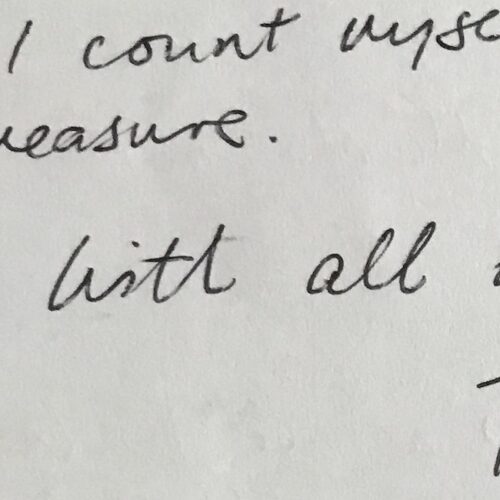 I count myse
easure.
With all